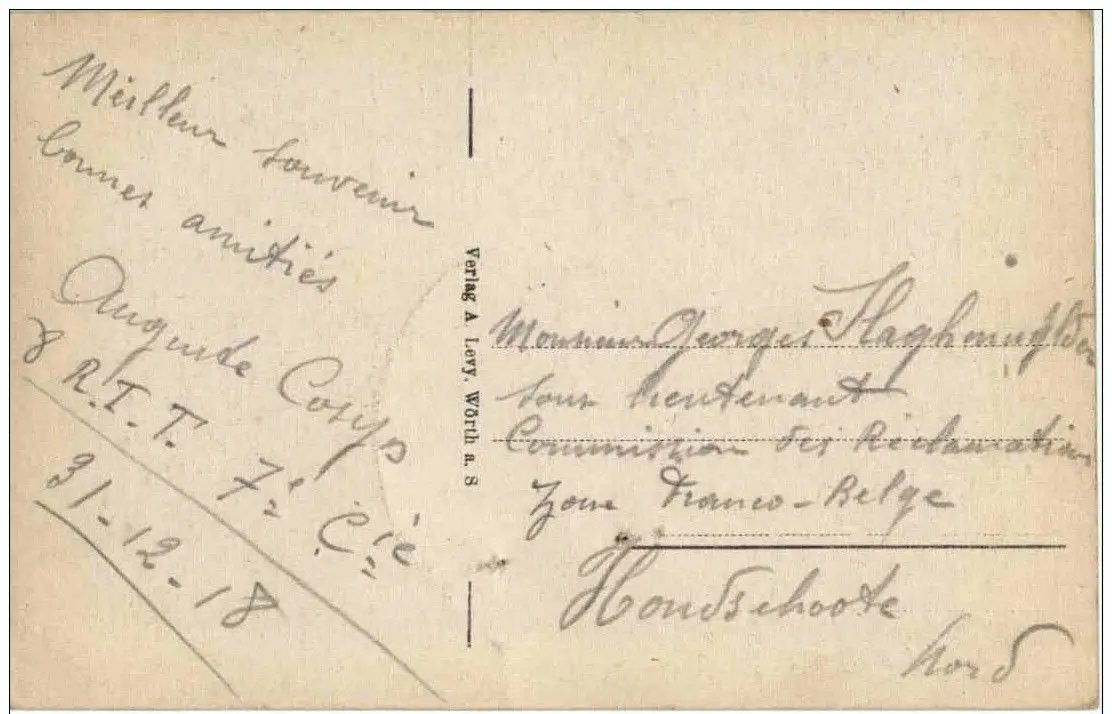 Meilleur souvenir
bonnes amitiés
Auguste
8 R.T.T. 7e Cie
31-12-18
Verlag A. Levy, Wörth a. S
Monsieur Georges
sous lieutenant
Commission des Réclamation
Zone Franco-Belge
Hondschoote
Nord